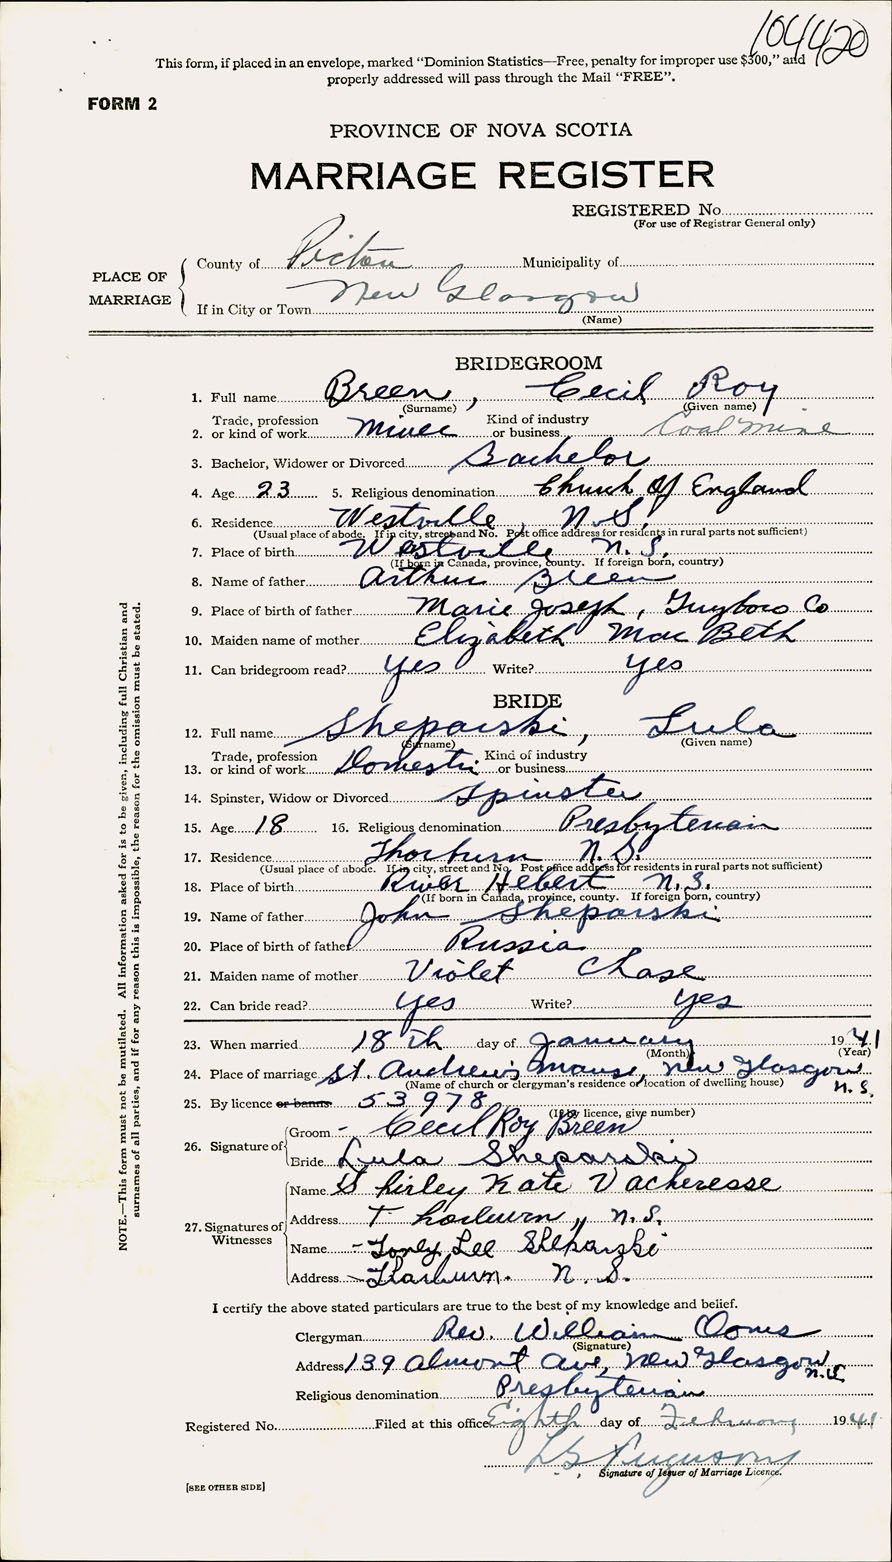 104420
This form, if placed in an envelope, marked “Dominion Statistics—Free, penalty for improper use $300,” and
properly addressed will pass through the Mail “FREE”.
FORM 2
PROVINCE OF NOVA SCOTIA
MARRIAGE REGISTER
REGISTERED No.
(For use of Registrar General only)
PLACE OF MARRIAGE
County of Pictou Municipality of
If in City or Town New Glasgow
(Name)
BRIDEGROOM
1. Full name Breen, Cecil Roy
(Surname) (Given name)
Trade, profession Kind of industry
2. or kind of work Miner or business Coal Mine
3. Bachelor, Widower or Divorced Bachelor
4. Age 23 5. Religious denomination Church Of England
6. Residence Westville, N.S.
(Usual place of abode. If in city, street and No. Post office address for residents in rural parts not sufficient)
7. Place of birth Westville N.S.
(If born in Canada, province, county. If foreign born, country)
8. Name of father Arthur Breen
9. Place of birth of father Marie Joseph, Guyboro Co
10. Maiden name of mother Elizabeth Mac Beth
11. Can bridegroom read? yes Write? yes
BRIDE
12. Full name Sheparski, Lula
(Surname) (Given name)
Trade, profession Kind of industry
13. or kind of work Domestic or business
14. Spinster, Widow or Divorced Spinster
15. Age 18 16. Religious denomination Presbyterian
17. Residence Thorburn N.S.
(Usual place of abode. If in city, street and No. Post office address for residents in rural parts not sufficient)
18. Place of birth River Hebert N.S.
(If born in Canada, province, county. If foreign born, country)
19. Name of father John Sheparski
20. Place of birth of father Russia
21. Maiden name of mother Violet Chase
22. Can bride read? yes Write? yes
23. When married 18th day of January 1941
(Month) (Year)
24. Place of marriage St. Andrew's Manse, New Glasgow N.S.
(Name of church or clergyman's residence or location of dwelling house)
25. By licence or banns 53978
(If by licence, give number)
26. Signature of
Groom - Cecil Roy Breen
Bride Lula Sheparski
27. Signatures of Witnesses
Name Shirley Kate Vacheresse
Address Thorburn, N.S.
Name - Toney Lee Sheparski
Address - Thorburn. N.S.
I certify the above stated particulars are true to the best of my knowledge and belief.
Clergyman Rev. William Ooms
(Signature)
Address 139 Almont Ave, New Glasgow N.S.
Religious denomination Presbyterian
Registered No. Filed at this office Eighth day of February 1941
Ferguson
Signature of Issuer of Marriage Licence.
[SEE OTHER SIDE]
NOTE.—This form must not be mutilated. All information asked for is to be given, including full Christian and
surnames of all parties, and if for any reason this is impossible, the reason for the omission must be stated.